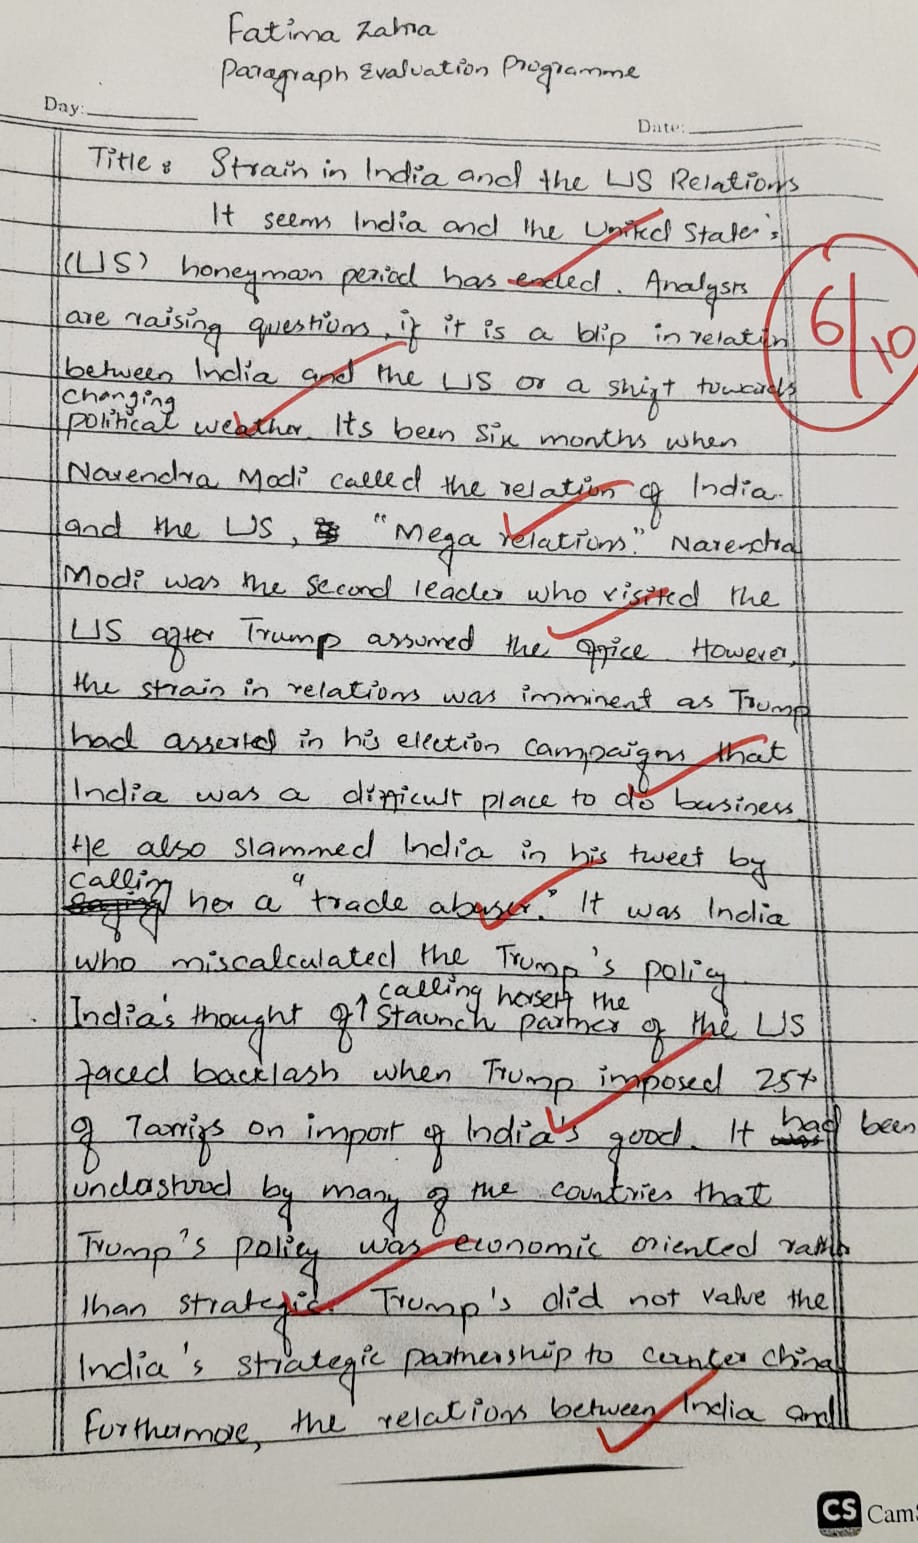 Fatima Zahra
Paragraph Evaluation Programme
Day:
Date:
Title: Strain in India and the US Relations
It seems India and the United State's
(US) honeyman period has ended. Analysts
are raising questions, if it is a blip in relatin
between India and the US or a shift towards
changing
political weather. Its been six months when
Narendra Modi called the relation of India
and the US, "Mega relations." Narendra
Modi was the second leader who visited the
US after Trump assumed the office. However,
the strain in relations was imminent as Trump
had asserted in his election campaigns that
India was a difficult place to do business.
He also slammed India in his tweet by
calling
her a "trade abuser." It was India
who miscalculated the Trump's policy.
calling herself the
India's thought of ↑ staunch partner of the US
faced backlash when Trump imposed 25%
of Tarrifs on import of India's good. It had been
understood by many of the countries that
Trump's policy was economic oriented rathr
than strategic. Trump's did not value the
India's strategic partnership to counter China
Furthermore, the relations between India and
6/10
CS Cam